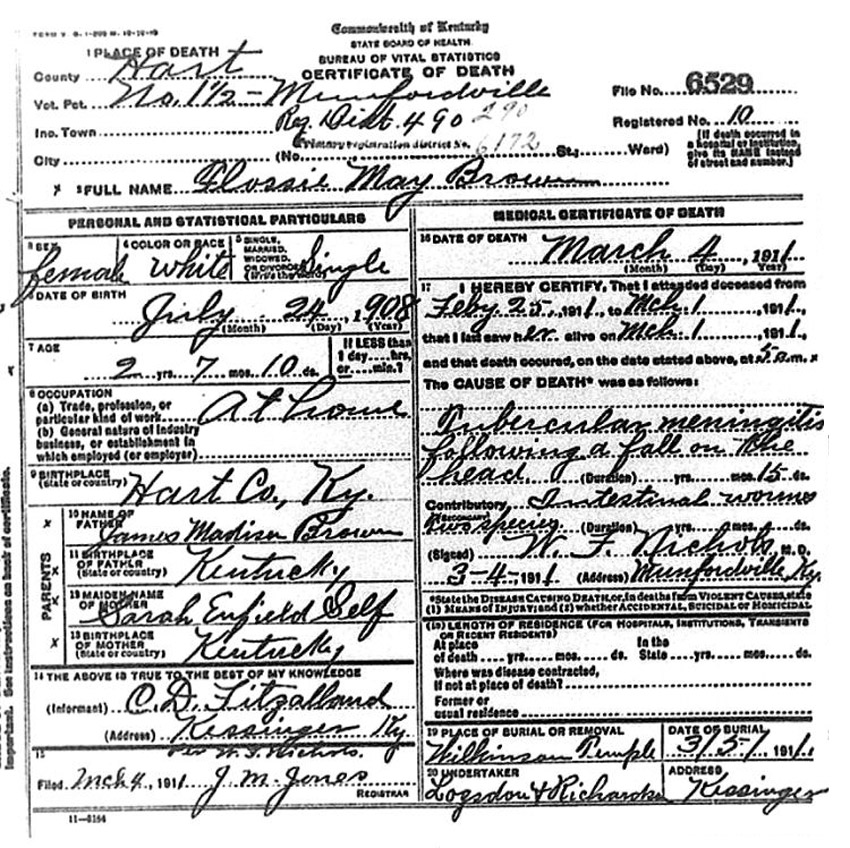 FORM V. S. 1-200 M. 10-10-10
Commonwealth of Kentucky
STATE BOARD OF HEALTH
BUREAU OF VITAL STATISTICS
CERTIFICATE OF DEATH
1 PLACE OF DEATH
County Hart
Vot. Pct. No. 1½ - Munfordville
File No. 6529
Ino. Town Reg. Dist. 490 290
Registered No. 10
(Primary registration district No. 6172
[If death occurred in a hospital or institution, give its NAME instead of street and number.]
City (No. St.; Ward)
x 2 FULL NAME Flossie May Brown
PERSONAL AND STATISTICAL PARTICULARS
3 SEX female
4 COLOR OR RACE white
5 SINGLE, MARRIED, WIDOWED, OR DIVORCED (Write the word) Single
6 DATE OF BIRTH
July 24, 1908
(Month) (Day) (Year)
7 AGE
2 yrs. 7 mos. 10 ds.
If LESS than 1 day....hrs. or....min.?
8 OCCUPATION
(a) Trade, profession, or particular kind of work At home
(b) General nature of industry business, or establishment in which employed (or employer)
9 BIRTHPLACE (State or country) Hart Co., Ky.
PARENTS
x 10 NAME OF FATHER James Madison Brown
11 BIRTHPLACE OF FATHER (State or country) Kentucky
x 12 MAIDEN NAME OF MOTHER Sarah Enfield Self
x 13 BIRTHPLACE OF MOTHER (State or country) Kentucky
14 THE ABOVE IS TRUE TO THE BEST OF MY KNOWLEDGE
(Informant) C. D.
(Address) Kessinger Ky
Per W. F. Nichols.
15
Filed Mch 4, 1911 J. M. Jones
REGISTRAR
11-3164
MEDICAL CERTIFICATE OF DEATH
16 DATE OF DEATH
March 4, 1911
(Month) (Day) Year
17 I HEREBY CERTIFY, That I attended deceased from
Feby. 25, 1911, to Mch. 1, 1911,
that I last saw her alive on Mch. 1, 1911,
and that death occured, on the date stated above, at 5 a.m. x
The CAUSE OF DEATH* was as follows:
Tubercular meningitis
following a fall on the
head. (Duration) yrs. mos. 15 ds.
Contributory Intestinal worms
(SECONDARY) two species (Duration) yrs. mos. ds.
(Signed) W. F. Nichols, M. D.
3-4-, 1911 (Address) Munfordville Ky.
*State the DISEASE CAUSING DEATH, or, in deaths from VIOLENT CAUSES, state
(1) MEANS OF INJURY; and (2) whether ACCIDENTAL, SUICIDAL OR HOMICIDAL
(18) LENGTH OF RESIDENCE (FOR HOSPITALS, INSTITUTIONS, TRANSIENTS
OR RECENT RESIDENTS)
At place of death yrs. mos. ds. In the State yrs. mos. ds.
Where was disease contracted,
if not at place of death?
Former or
usual residence
19 PLACE OF BURIAL OR REMOVAL
Wilkinson Temple
DATE OF BURIAL
3/5/, 1911.
20 UNDERTAKER
Logsdon & Richardson
ADDRESS
Kessinger
Important. See instructions on back of certificate.